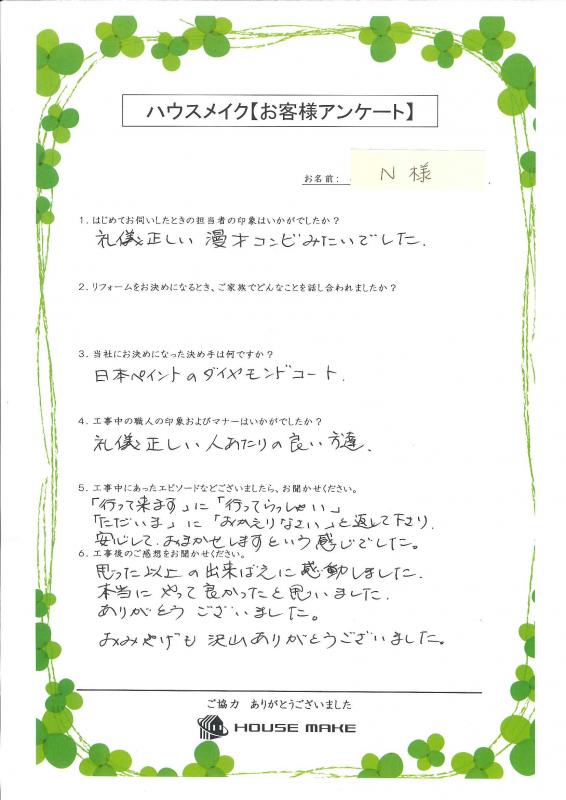 ハウスメイク【お客様アンケート】
お名前: N 様
1. はじめてお伺いしたときの担当者の印象はいかがでしたか?
礼儀正しい 漫才コンビみたいでした.
2. リフォームをお決めになるとき、ご家族でどんなことを話し合われましたか?
3. 当社にお決めになった決め手は何ですか?
日本ペイントのダイヤモンドコート.
4. 工事中の職人の印象およびマナーはいかがでしたか?
礼儀正しい 人あたりの良い方達.
5. 工事中にあったエピソードなどございましたら、お聞かせください。
「行って来ます」に「行ってらっしゃい」
「ただいま」に「おかえりなさい」と返して下さり.
安心して.おまかせしますという感じでした。
6. 工事後のご感想をお聞かせください。
思った以上の出来ばえに感動しました.
本当にやって良かったと思いました.
ありがとうございました。
おみやげも沢山ありがとうございました。
ご協力 ありがとうございました
HOUSE MAKE